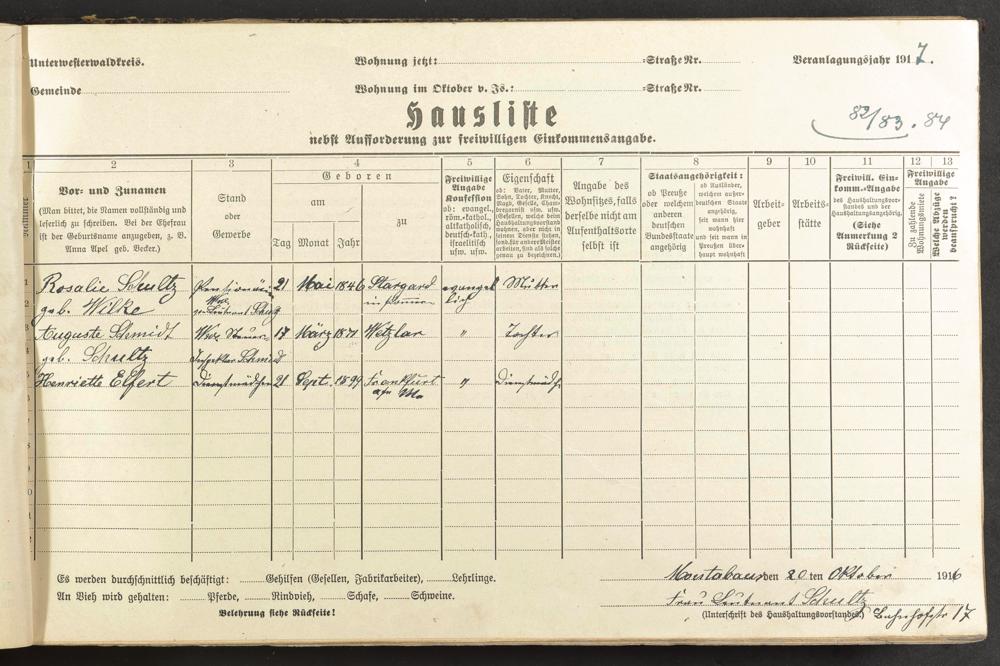 Unterwesterwaldkreis. Wohnung jetzt: =Straße Nr. Veranlagungsjahr 1917.
Gemeinde Wohnung im Oktober v. Js.: =Straße Nr.
Hausliste 82/83. 84
nebst Aufforderung zur freiwilligen Einkommensangabe.
1 2 3 4 5 6 7 8 9 10 11 12 13
Vor- und Zunamen
(Man bittet, die Namen vollständig und
leserlich zu schreiben. Bei der Ehefrau
ist der Geburtsname anzugeben, z. B.
Anna Apel geb. Becker.)
Stand
oder
Gewerbe
Geboren
am
zu
Tag Monat Jahr
Freiwillige
Angabe
Konfession
ob: evangel.,
röm.-kathol.,
altkatholisch,
deutsch-kath.,
israelitisch
usw. usw.
Eigenschaft
ob: Vater, Mutter,
Sohn, Tochter, Knecht,
Magd, Geselle, Cham-
bregarnist usw. usw.
(Gesellen, welche beim
Haushaltungsvorstand
wohnen, aber nicht in
seinem Dienste stehen,
sond. für andere Meister
arbeiten, sind als solche
genau zu bezeichnen).
Angabe des
Wohnsitzes, falls
derselbe nicht am
Aufenthaltsorte
selbst ist
Staatsangehörigkeit:
ob Preuße
oder welchem
anderen
deutschen
Bundesstaate
angehörig
ob Ausländer,
welchem außer-
deutschen Staate
angehörig,
seit wann hier
wohnhaft
und seit wann in
Preußen über-
haupt wohnhaft
Arbeit-
geber
Arbeits-
stätte
Freiwill. Ein-
komm.-Angabe
des Haushaltungsvor-
standes und der
Haushaltungsangehörig.
(Siehe
Anmerkung 2
Rückseite)
Freiwillige
Angabe
Zu zahlende
Wohnungsmiete
Welche Abzüge
werden
beansprucht?
Rosalie Schultz 21 Mai 1846 Stargard evangel Mutter
geb. Wilke in Pommern lich
Auguste Schmidt Wwe. Steuer- 17 März 1871 Wetzlar " Tochter
geb. Schultz Inspektor Schmid
Henriette Elfert Dienstmädchen 21 Sept. 1899 Frankfurt " Dienstmädch
a/m
Es werden durchschnittlich beschäftigt: Gehilfen (Gesellen, Fabrikarbeiter), Lehrlinge.
Montabaur den 20 ten Oktober 1916
An Vieh wird gehalten: Pferde, Rindvieh, Schafe, Schweine.
Frau Leutnant Schultz
Belehrung siehe Rückseite!
(Unterschrift des Haushaltungsvorstandes.) Bahnhofstr 17